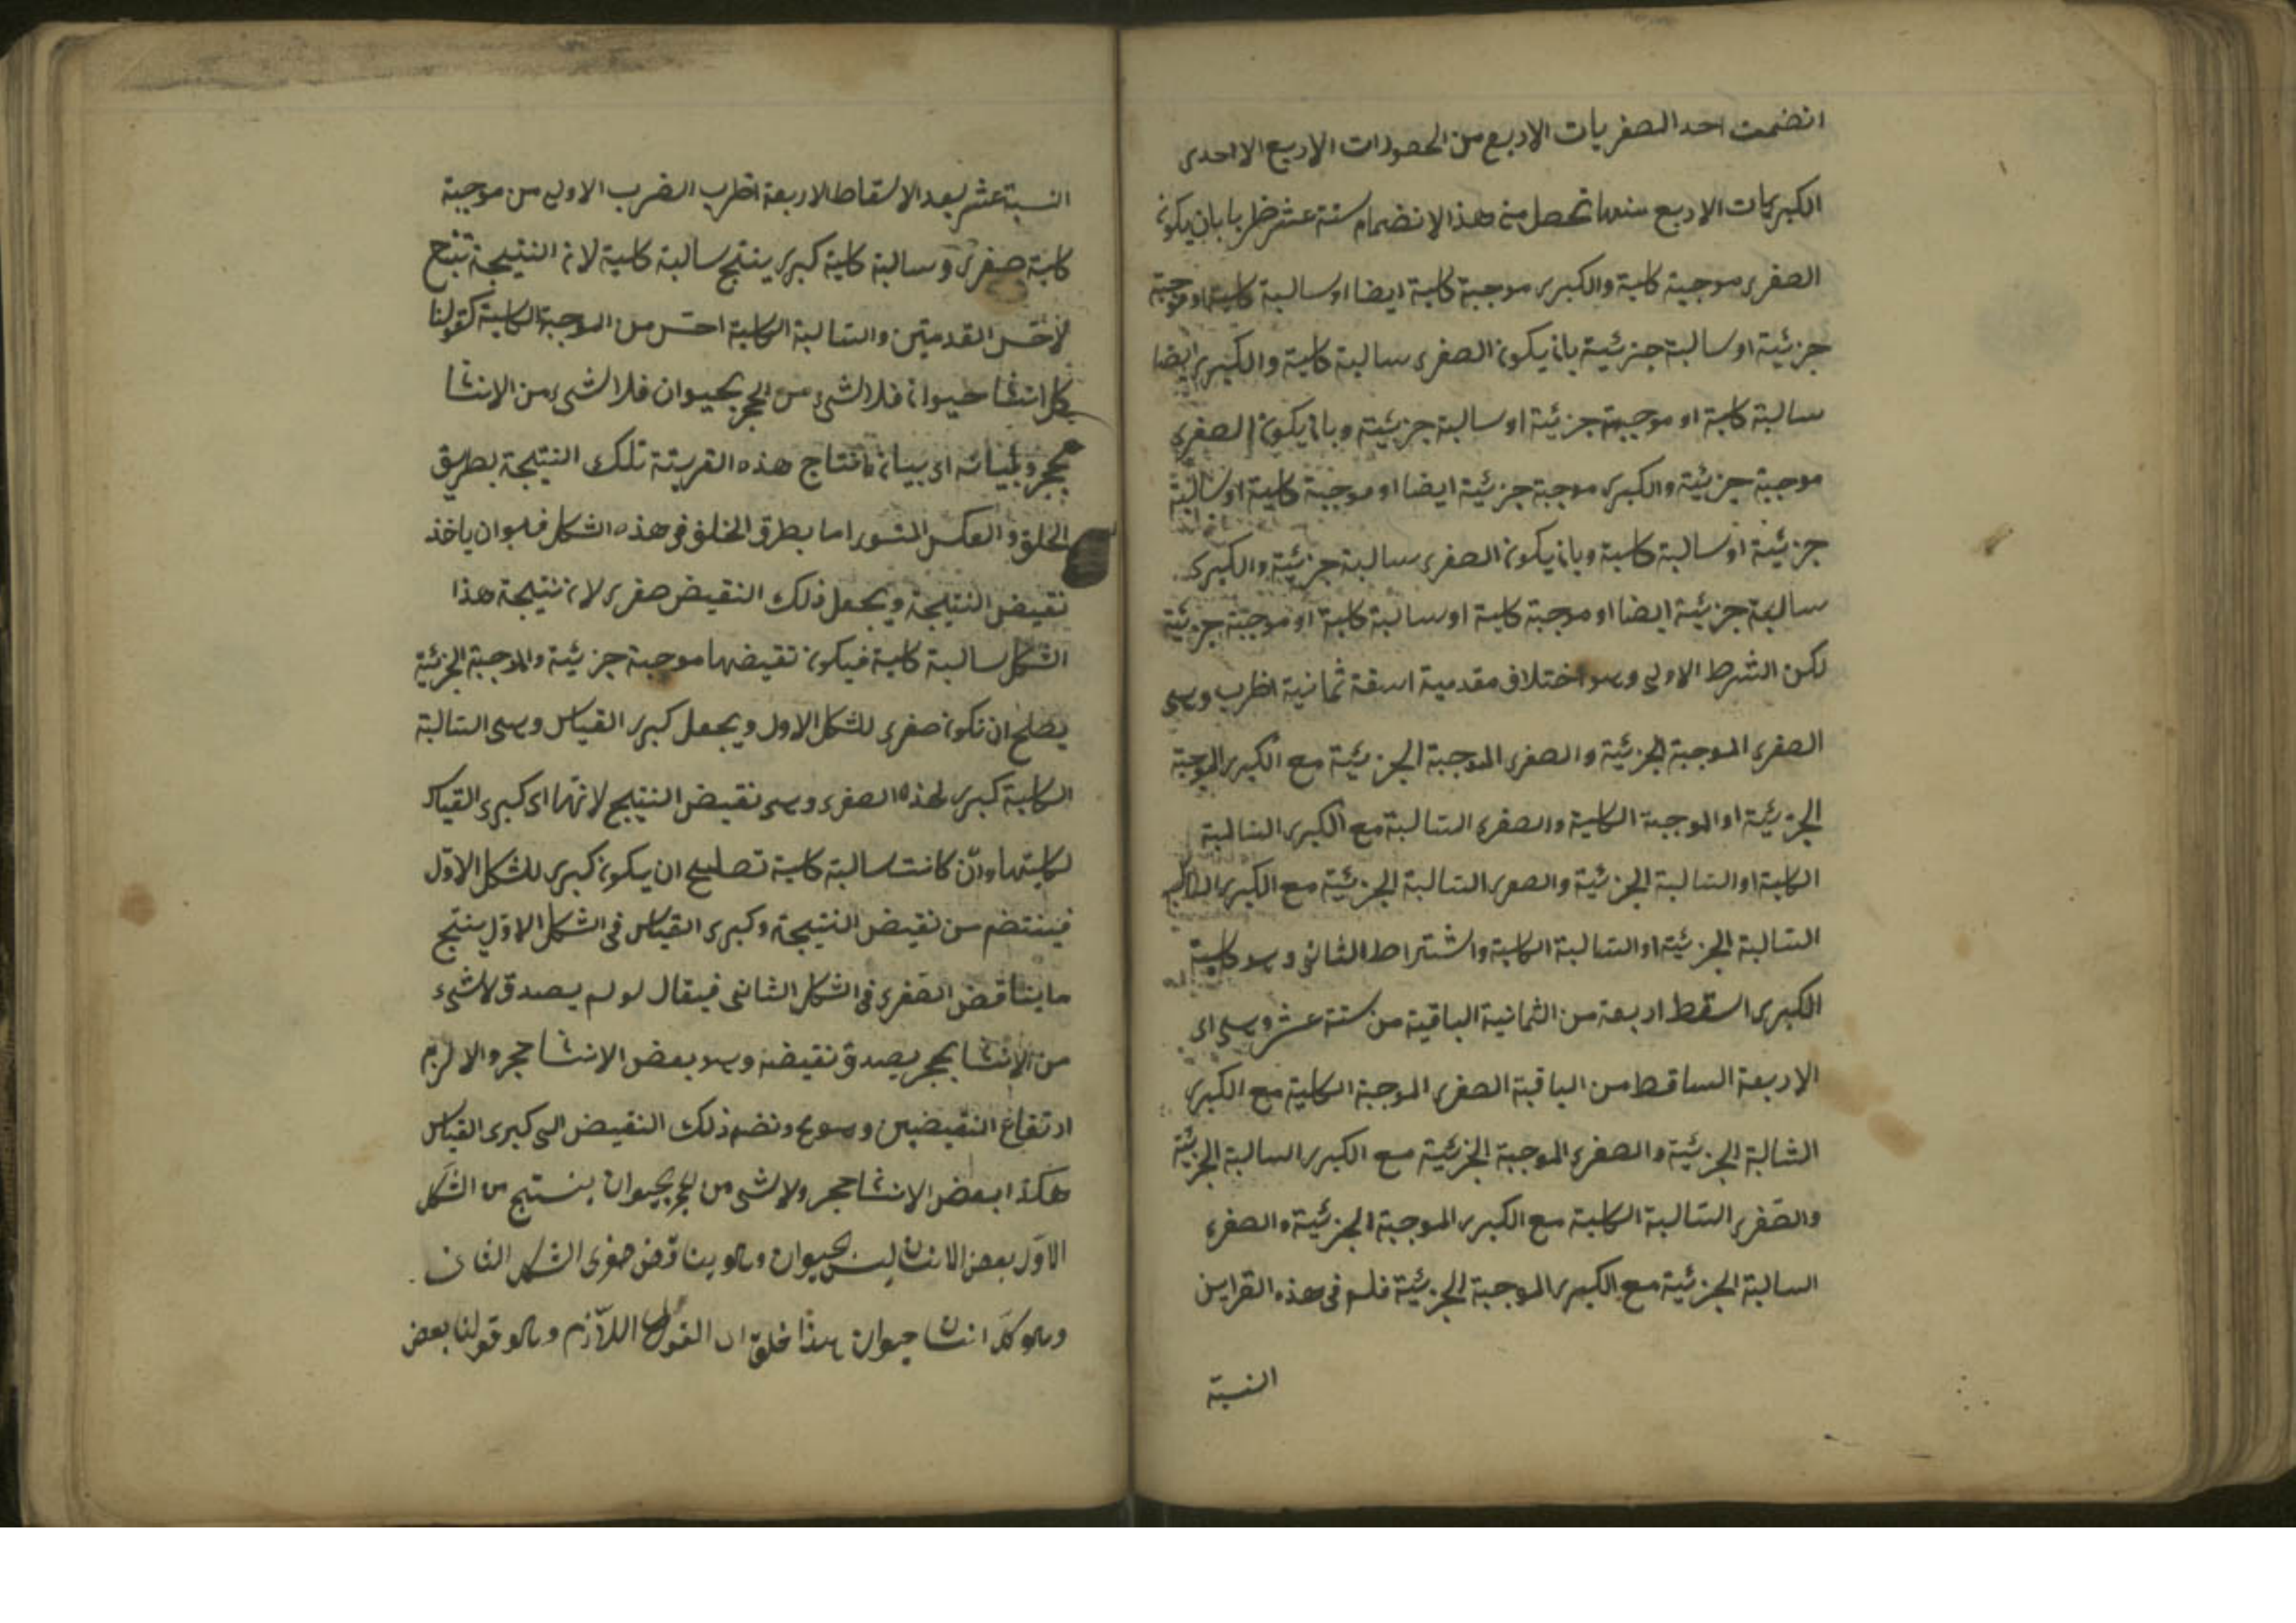 انضمت احد الصغريات الاربع من الحصورات الاربع الاحدى
الكبريات الاربع منها تحصل من هذا الانضمام ستة عشر ظربا بان يكون
الصغرى موجبة كلية والكبرى موجبة كلية ايضا او سالبة كلية او موجبة
جزئية او سالبة جزئية بان يكون الصغرى سالبة كلية والكبرى ايضا
سالبة كلية او موجبة جزئية او سالبة جزئية وبان يكون الصغرى
موجبة جزئية والكبرى موجبة جزئية ايضا او موجبة كلية او سالبة
جزئية او سالبة كلية وبان يكون الصغرى سالبة جزئية والكبرى
سالبة جزئية ايضا او موجبة كلية او سالبة كلية او موجبة جزئية
لكن الشرط الاولى وهو اختلاف مقدمية اسقة ثمانية اظرب وهى
الصغرى الموجبة الجزئية والصغرى الموجبة الجزئية مع الكبرى الموجبة
الجزئية او الموجبة الكلية والصغرى السالبة مع الكبرى السالبة
الكلية او السالبة الجزئية والصغرى السالبة الجزئية مع الكبرى
السالبة الجزئية او السالبة الكلية واشتراط الثانى وهو كلية
الكبرى اسقط اربعة من الثمانية الباقية من ستة عشر وهى اى
الاربعة الساقط من الباقية الصغرى الموجبة الكلية مع الكبرى
الشالبة الجزئية والصغرى الموجبة الجزئية مع الكبرى السالبة الجزئية
والصغرى السالبة الكلية مع الكبرى الموجبة الجزئية والصغرى
السالبة الجزئية مع الكبرى الموجبة الجزئية فلم فى هذه القراين
النسبة
النسبة عشر بعد الاسقاط الاربعة اظرب الضرب الاولى من موجبة
كلية صغرى وسالبة كلية كبرى ينتج سالبة كلية لان النتيجة تتبع
لاخس القدمتين والسالبة الكلية احس من الموجبة الكلية كقولنا
كل انسا حيوان فلا الشئ من الحجر بحيوان فلا الشئ من الانسا
بحجر وبيانه اى بيان انتاج هذه القرينة تلك النتيجة بطريق
الخلق والعكس المشور اما بطرق الخلف فى هذه الشكل فهو ان ياخذ
نقيض النتيجة ويجعل ذلك النقيض صغرى لان نتيجة هذا
الشكل سالبة كلية فيكون نقيضها موجبة جزئية والموجبة الجزئية
يصلح ان تكون صغرى للشكل الاول ويجعل كبرى القياس وهى السالبة
الكلية كبرى لهذه الصغرى وهى نقيض النتيج لانهما اى كبرى القياس
لكليتها وان كانت سالبة كلية تصليح ان يكون كبرى للشكل الاول
فينتضم من نقيض النتيجة وكبرى القياس فى الشكل الاول ينتج
ما يناقض الصغرى فى الشكل الثانى فيقال لو لم يصدق لاشئ
من الانسا بحجر يصدق نقيضه وهو بعض الانسا حجر والا لزم
ارتفاع النقيضين وهو مح ونضم ذلك النقيض الى كبرى القياس
هكذا بعض الانسا حجر ولا شئ من الحجر بحيوان ينستج من الشكل
الاول بعض الانسان ليس بحيوان وهو يناقض صغرى الشكل الثانى
وهو كل انسان حيوان هذا خلق اى القول اللازم وهو قولنا بعض